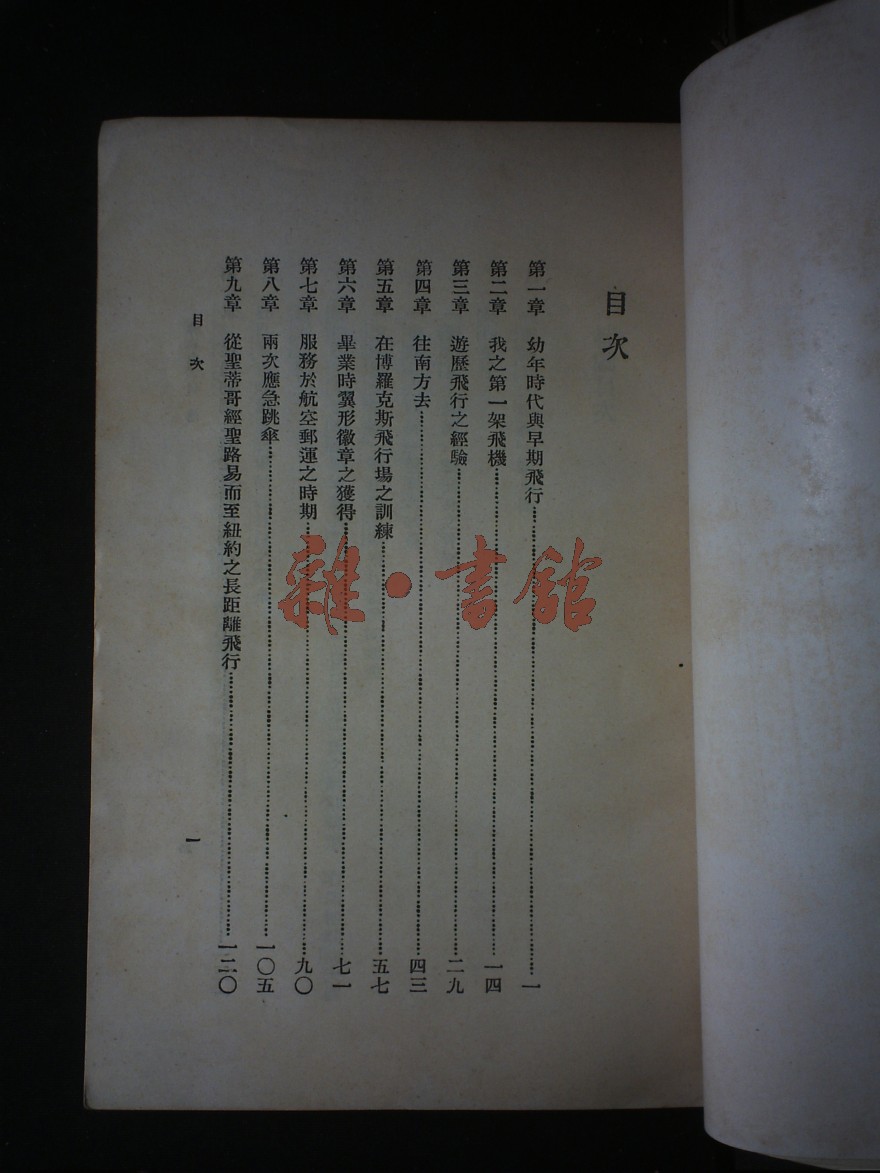 目次
第一章　幼年時代與早期飛行……一
第二章　我之第一架飛機……一四
第三章　遊歷飛行之經驗……二九
第四章　往南方去……四三
第五章　在博羅克斯飛行場之訓練……五七
第六章　畢業時翼形徽章之獲得……七一
第七章　服務於航空郵運之時期……九〇
第八章　兩次應急跳傘……一〇五
第九章　從聖蒂哥經聖路易而至紐約之長距離飛行……一二〇
目次
一
雜·書館